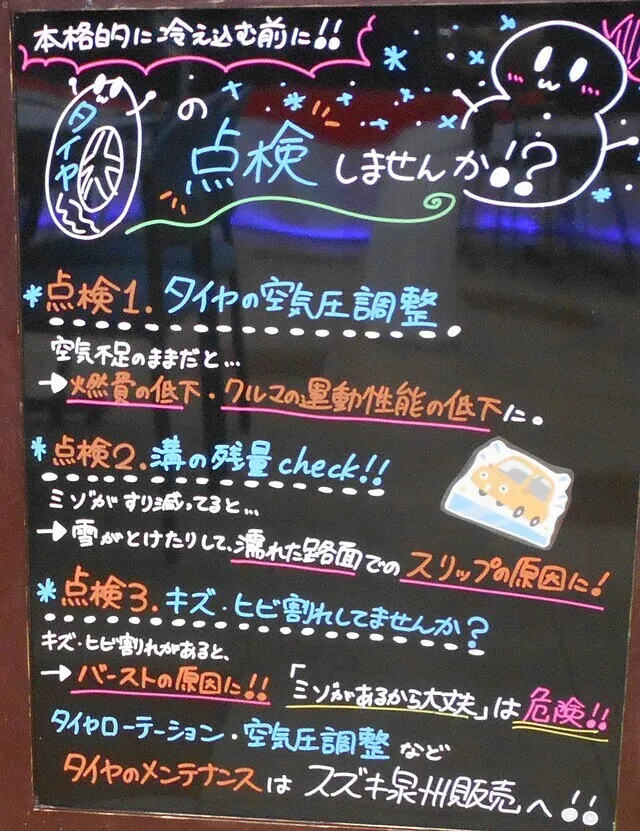 本格的に冷え込む前に!!
タイヤの
点検しませんか!?
*点検1.タイヤの空気圧調整
空気不足のままだと…
→燃費の低下・クルマの運動性能の低下に。
*点検2.溝の残量check!!
ミゾがすり減ってると…
→雪がとけたりして、濡れた路面でのスリップの原因に!
*点検3.キズ・ヒビ割れしてませんか?
キズ・ヒビ割れがあると、
→バーストの原因に!!「ミゾがあるから大丈夫」は危険!!
タイヤローテーション・空気圧調整など
タイヤのメンテナンスはスズキ泉州販売へ!!